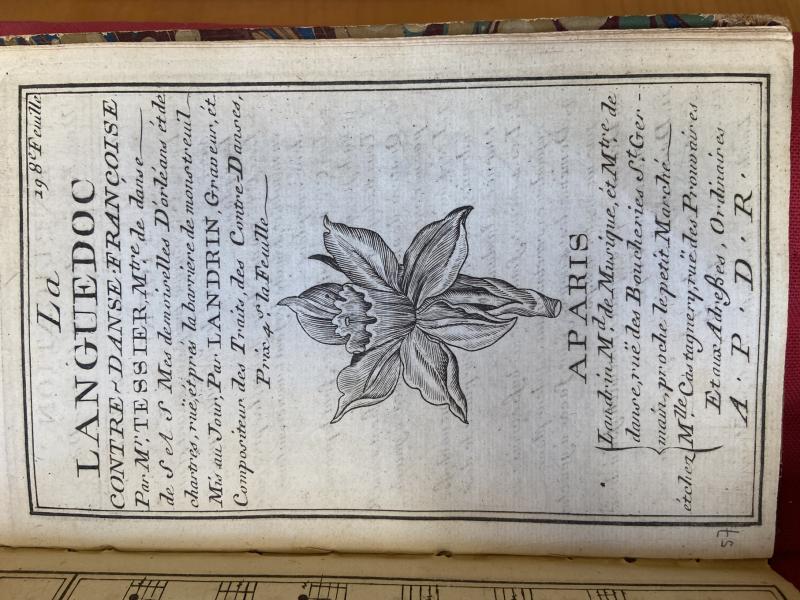 19 8.e Feuille
La
LANGUEDOC
CONTRE-DANSE FRANÇOISE
Par M.r TESSIER, M.tre de danse
de S A S Mes demoiselles D'orléans ét de
chartres, ruë, ét prés la barriére de monstreuil
Mis au Jour, Par LANDRIN, Graveur, ét
Compositeur des Traits, des Contre-Danses,
Prix 4.s la Feuille
A PARIS
Landrin M.d de Musique, ét M.tre de
danse, ruë des Boucheries S.t Ger-
main, proche le petit Marché
ét chez M.lle Castagnery, ruë des Prouvaires
Et aux Adreßes, Ordinaires
A. P. D. R.
57